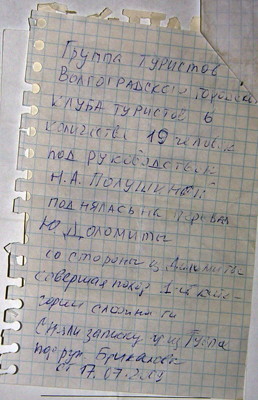 Группа туристов
Волгоградского городск
клуба туристов в
количестве 19 человек
под руководством
Н.А. Полушиной
поднялась на перевал
Ю. Доломиты
со стороны в. Доломиты
совершая поход 1-й кате-
гории сложности
Сняли записку группы
под рук.
от 17.07.2009